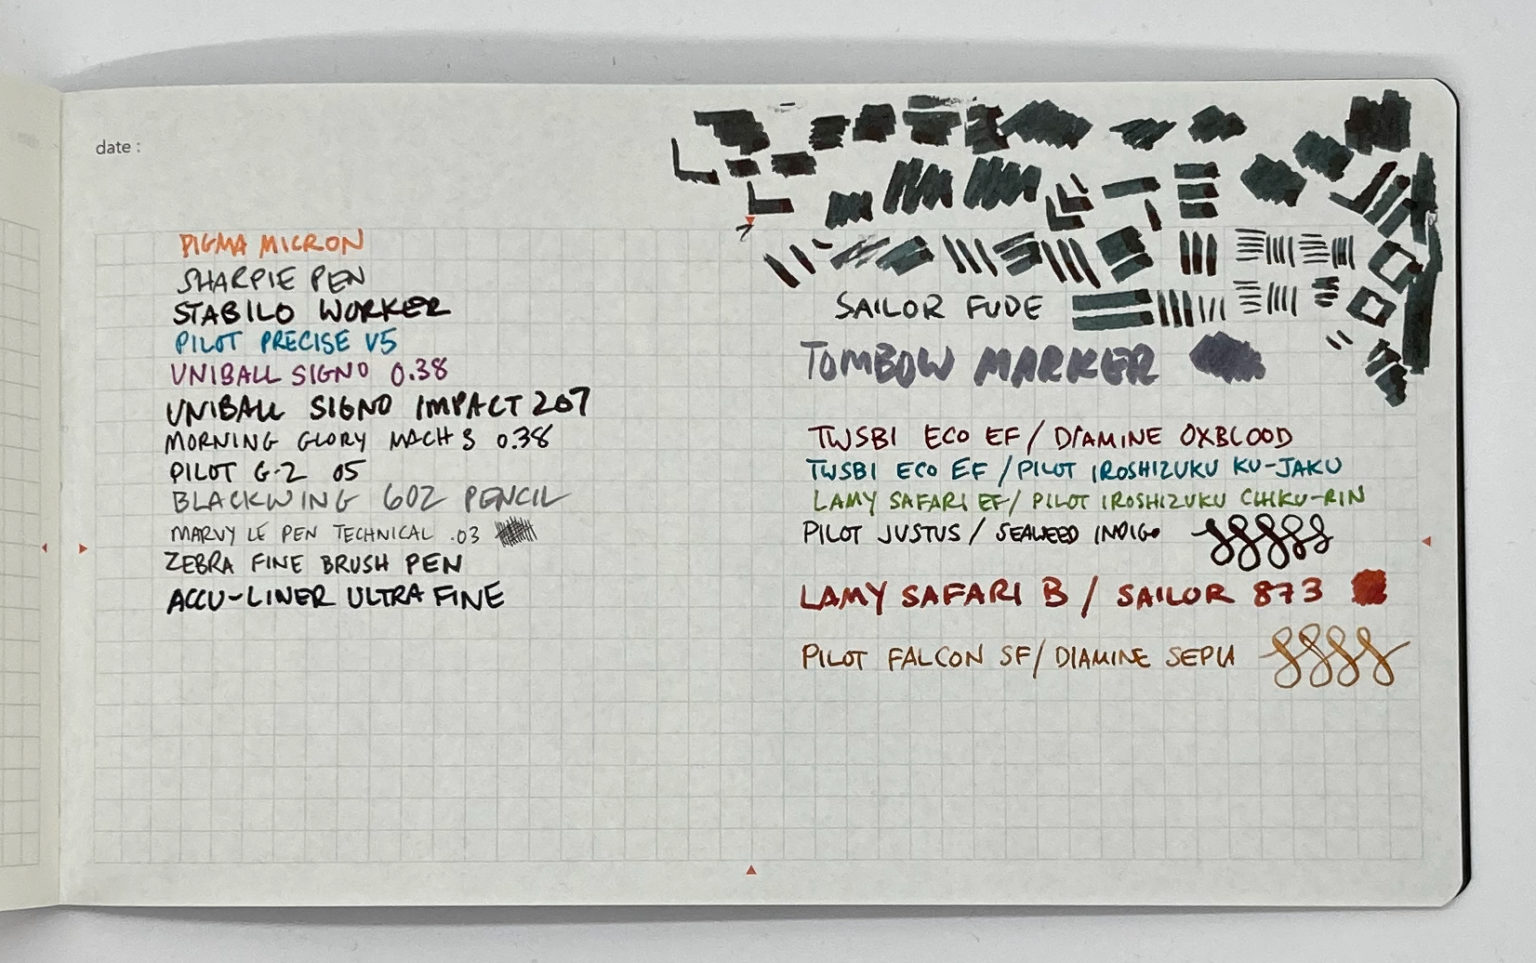 date :
PIGMA MICRON
SHARPIE PEN
STABILO WORKER
PILOT PRECISE V5
UNIBALL SIGNO 0.38
UNIBALL SIGNO IMPACT 207
MORNING GLORY MACH 3 0.38
PILOT G-2 05
BLACKWING 602 PENCIL
MARVY LE PEN TECHNICAL .03
ZEBRA FINE BRUSH PEN
ACCU-LINER ULTRA FINE
SAILOR FUDE
TOMBOW MARKER
TWSBI ECO EF / DIAMINE OXBLOOD
TWSBI ECO EF / PILOT IROSHIZUKU KU-JAKU
LAMY SAFARI EF / PILOT IROSHIZUKU CHIKU-RIN
PILOT JUSTUS / SEAWEED INDIGO
LAMY SAFARI B / SAILOR 873
PILOT FALCON SF / DIAMINE SEPIA